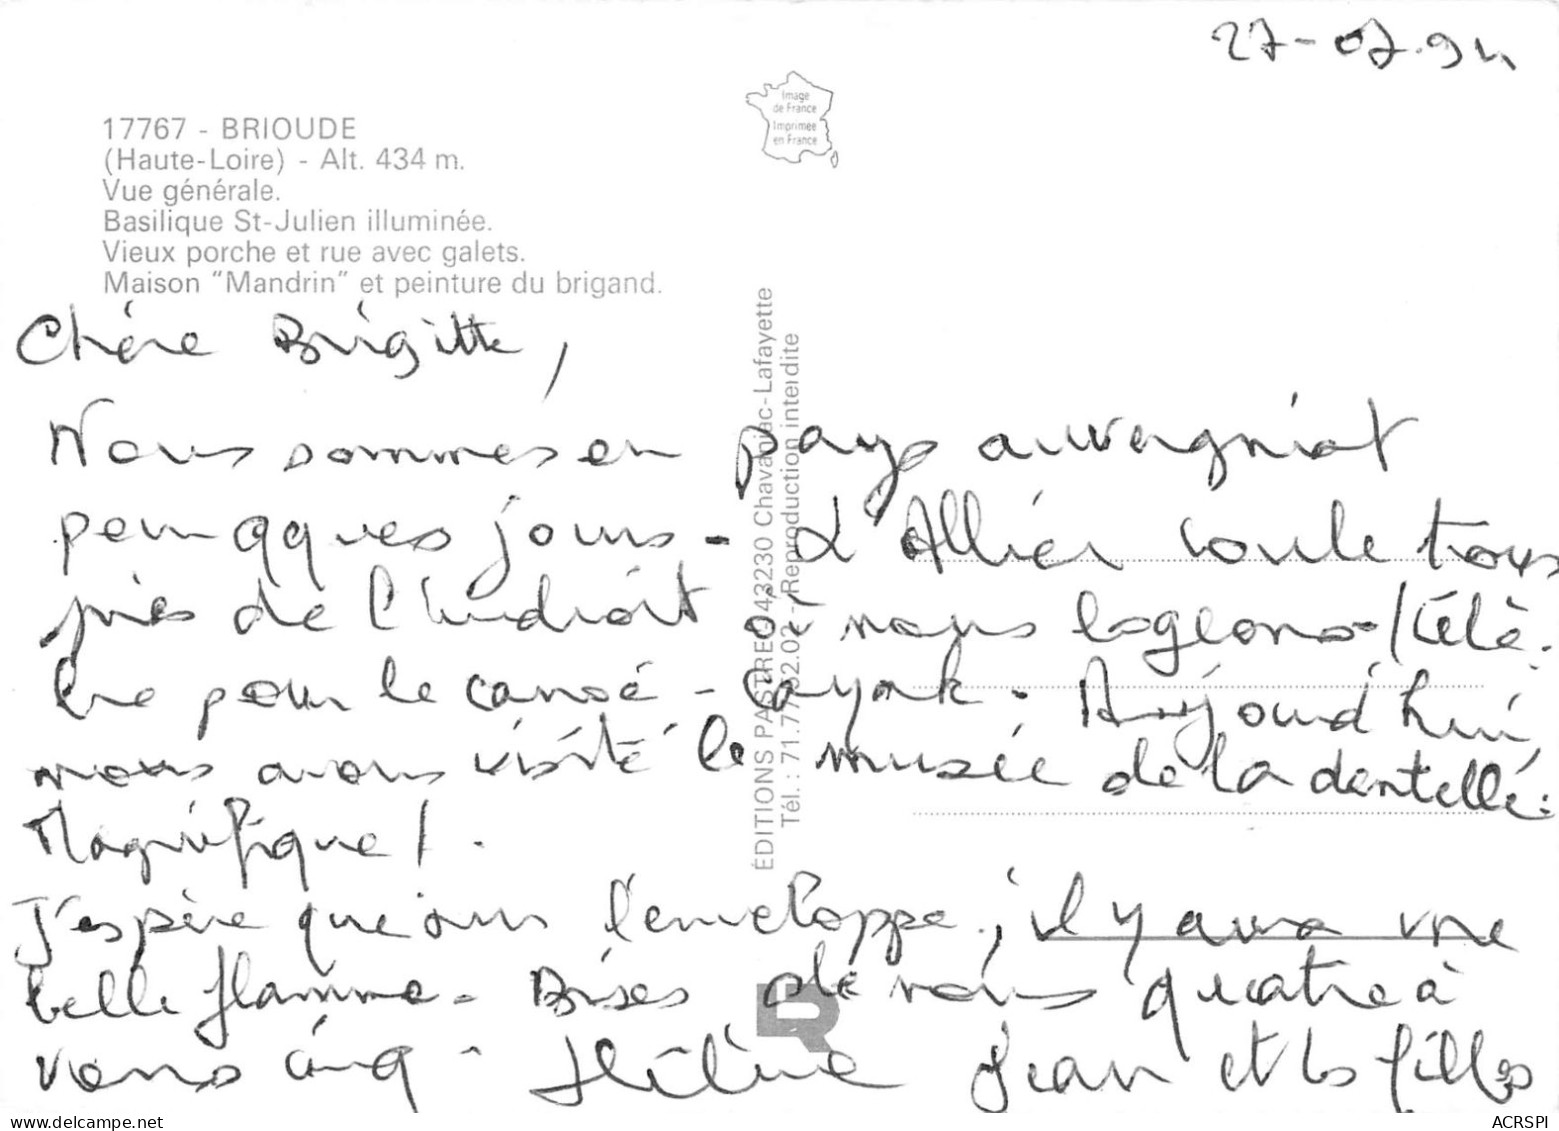 27-07.94
Image
de France
Imprimée
en France
17767 - BRIOUDE
(Haute-Loire) - Alt. 434 m.
Vue générale.
Basilique St-Julien illuminée.
Vieux porche et rue avec galets.
Maison "Mandrin" et peinture du brigand.
ÉDITIONS PASTRE - 43230 Chavaniac-Lafayette
Tél.: 71.77 - Reproduction interdite
Chère Brigitte,
Nous sommes en pays auvergnat
pour qques jours - L'Allier coule trous
près de l'endroit où nous logeons (célè-
bre pour le canoé - cayak. Aujourd'hui
nous avons visité le musée de la dentelle:
Magnifique!.
J'espère que sur l'enveloppe, il y aura une
belle flamme - Bises de nous quatre à
vous cinq - Hélène Jean et les filles
www.delcampe.net
ACRSPI